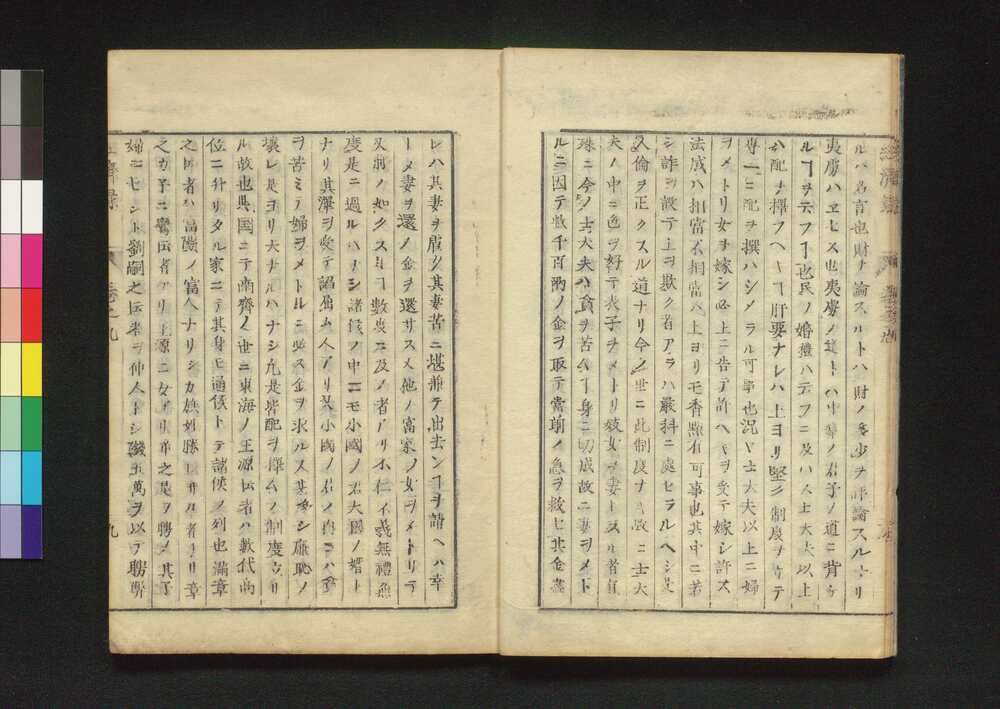 ルハ名言也財ヲ論スルトハ財ノ多少ヲ評論スルナリ
夷虜ハヱヒス也夷虜ノ道トハ中華ノ君子ノ道ニ背ク
ルヿヲ云フヿ也民ノ婚禮ハ云フニ及ハス士大夫以上
ハ配ヲ擇フヘキヿ肝要ナレハ上ヨリ堅ク制度ヲ立テ
專一ニ配ヲ撰ハシメラル可事也況ヤ士大夫以上ニ婦
ヲメトリ女ヲ嫁シ必上ニ告テ許ヘキヲ受テ嫁シ許ス
法成ハ相當不相當ハ上ヨリモ吞點有可事也其中ニ若
シ詐ヲ設テ上ヲ欺ク者アラハ嚴科ニ處セラルヘシ是
人倫ヲ正クスル道ナリ今ノ世ニ此制度ナシ故ニ士大
夫ノ中ニ色ヲ好テ表子ヲメトリ妓女ヲ妻トスル者有
殊ニ今ノ士大夫ハ貧ヲ苦ムヿ身ニ切成故ニ妻ヲメト
ルニ因テ數千百兩ノ金ヲ取テ當前ノ急ヲ救ヒ其金盡
レハ其妻ヲ雇シ其妻苦ニ堪兼テ出去ンヿヲ請ヘハ幸
トメ妻ヲ還ノ金ヲ還サスメ他ノ富家ノ女ヲメトリテ
又前ノ如クスルヿ數度ニ及ノ者アリ不仁不義無禮無
度是ニ過ルハナシ諸侯ノ中ニモ小國ノ君大國ノ婿ト
ナリ其澤ヲ受テ諂屈ム人アリ又小國ノ君ノ内ニハ貧
ヲ苦ミテ婦ヲメトルニ必ス金ヲ求ルス甚多シ廉恥ノ
壞レ是ヨリ大ナルハナシ凡是皆配ヲ擇ムノ制度立サ
ル故也異國ニテ南齊ノ世ニ東海ノ王源云者ハ數代高
位ニ升リタル家ニテ其身モ通侯トテ諸侯ノ列也滿章
之云者ハ富陽ノ富人ナリシカ族姓勝レサル者ナリ章
之カ子ニ鸞云者アリ王源ニ女アリ章之是ヲ聘メ其子
婦ニセント劉嗣之云者ヲ仲人トシ錢五萬ヲ以テ聘幣
卷之九
九